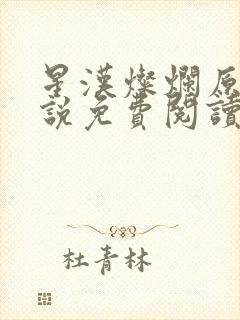 星漢燦爛原
說免費閱讀
杜青林